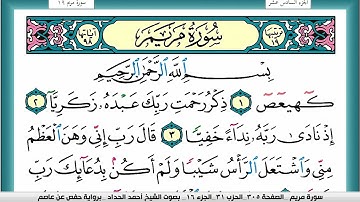 الجزء السادس عشر
سورة مريم ١٩
ترتيبها ١٩ سُورَةُ مَرْيَمَ آياتها ٩٨
بِسْمِ ٱللَّهِ ٱلرَّحْمَٰنِ ٱلرَّحِيمِ
كٓهيعٓصٓ ١ ذِكْرُ رَحْمَتِ رَبِّكَ عَبْدَهُۥ زَكَرِيَّآ ٢
إِذْ نَادَىٰ رَبَّهُۥ نِدَآءً خَفِيًّا ٣ قَالَ رَبِّ إِنِّى وَهَنَ ٱلْعَظْمُ
مِنِّى وَٱشْتَعَلَ ٱلرَّأْسُ شَيْبًا وَلَمْ أَكُنۢ بِدُعَآئِكَ رَبِّ
سورة مريم _ الصفحة ٣٠٥ _ الحزب ٣١ _ الجزء ١٦ _ بصوت الشيخ أحمد الحداد _ برواية حفص عن عاصم